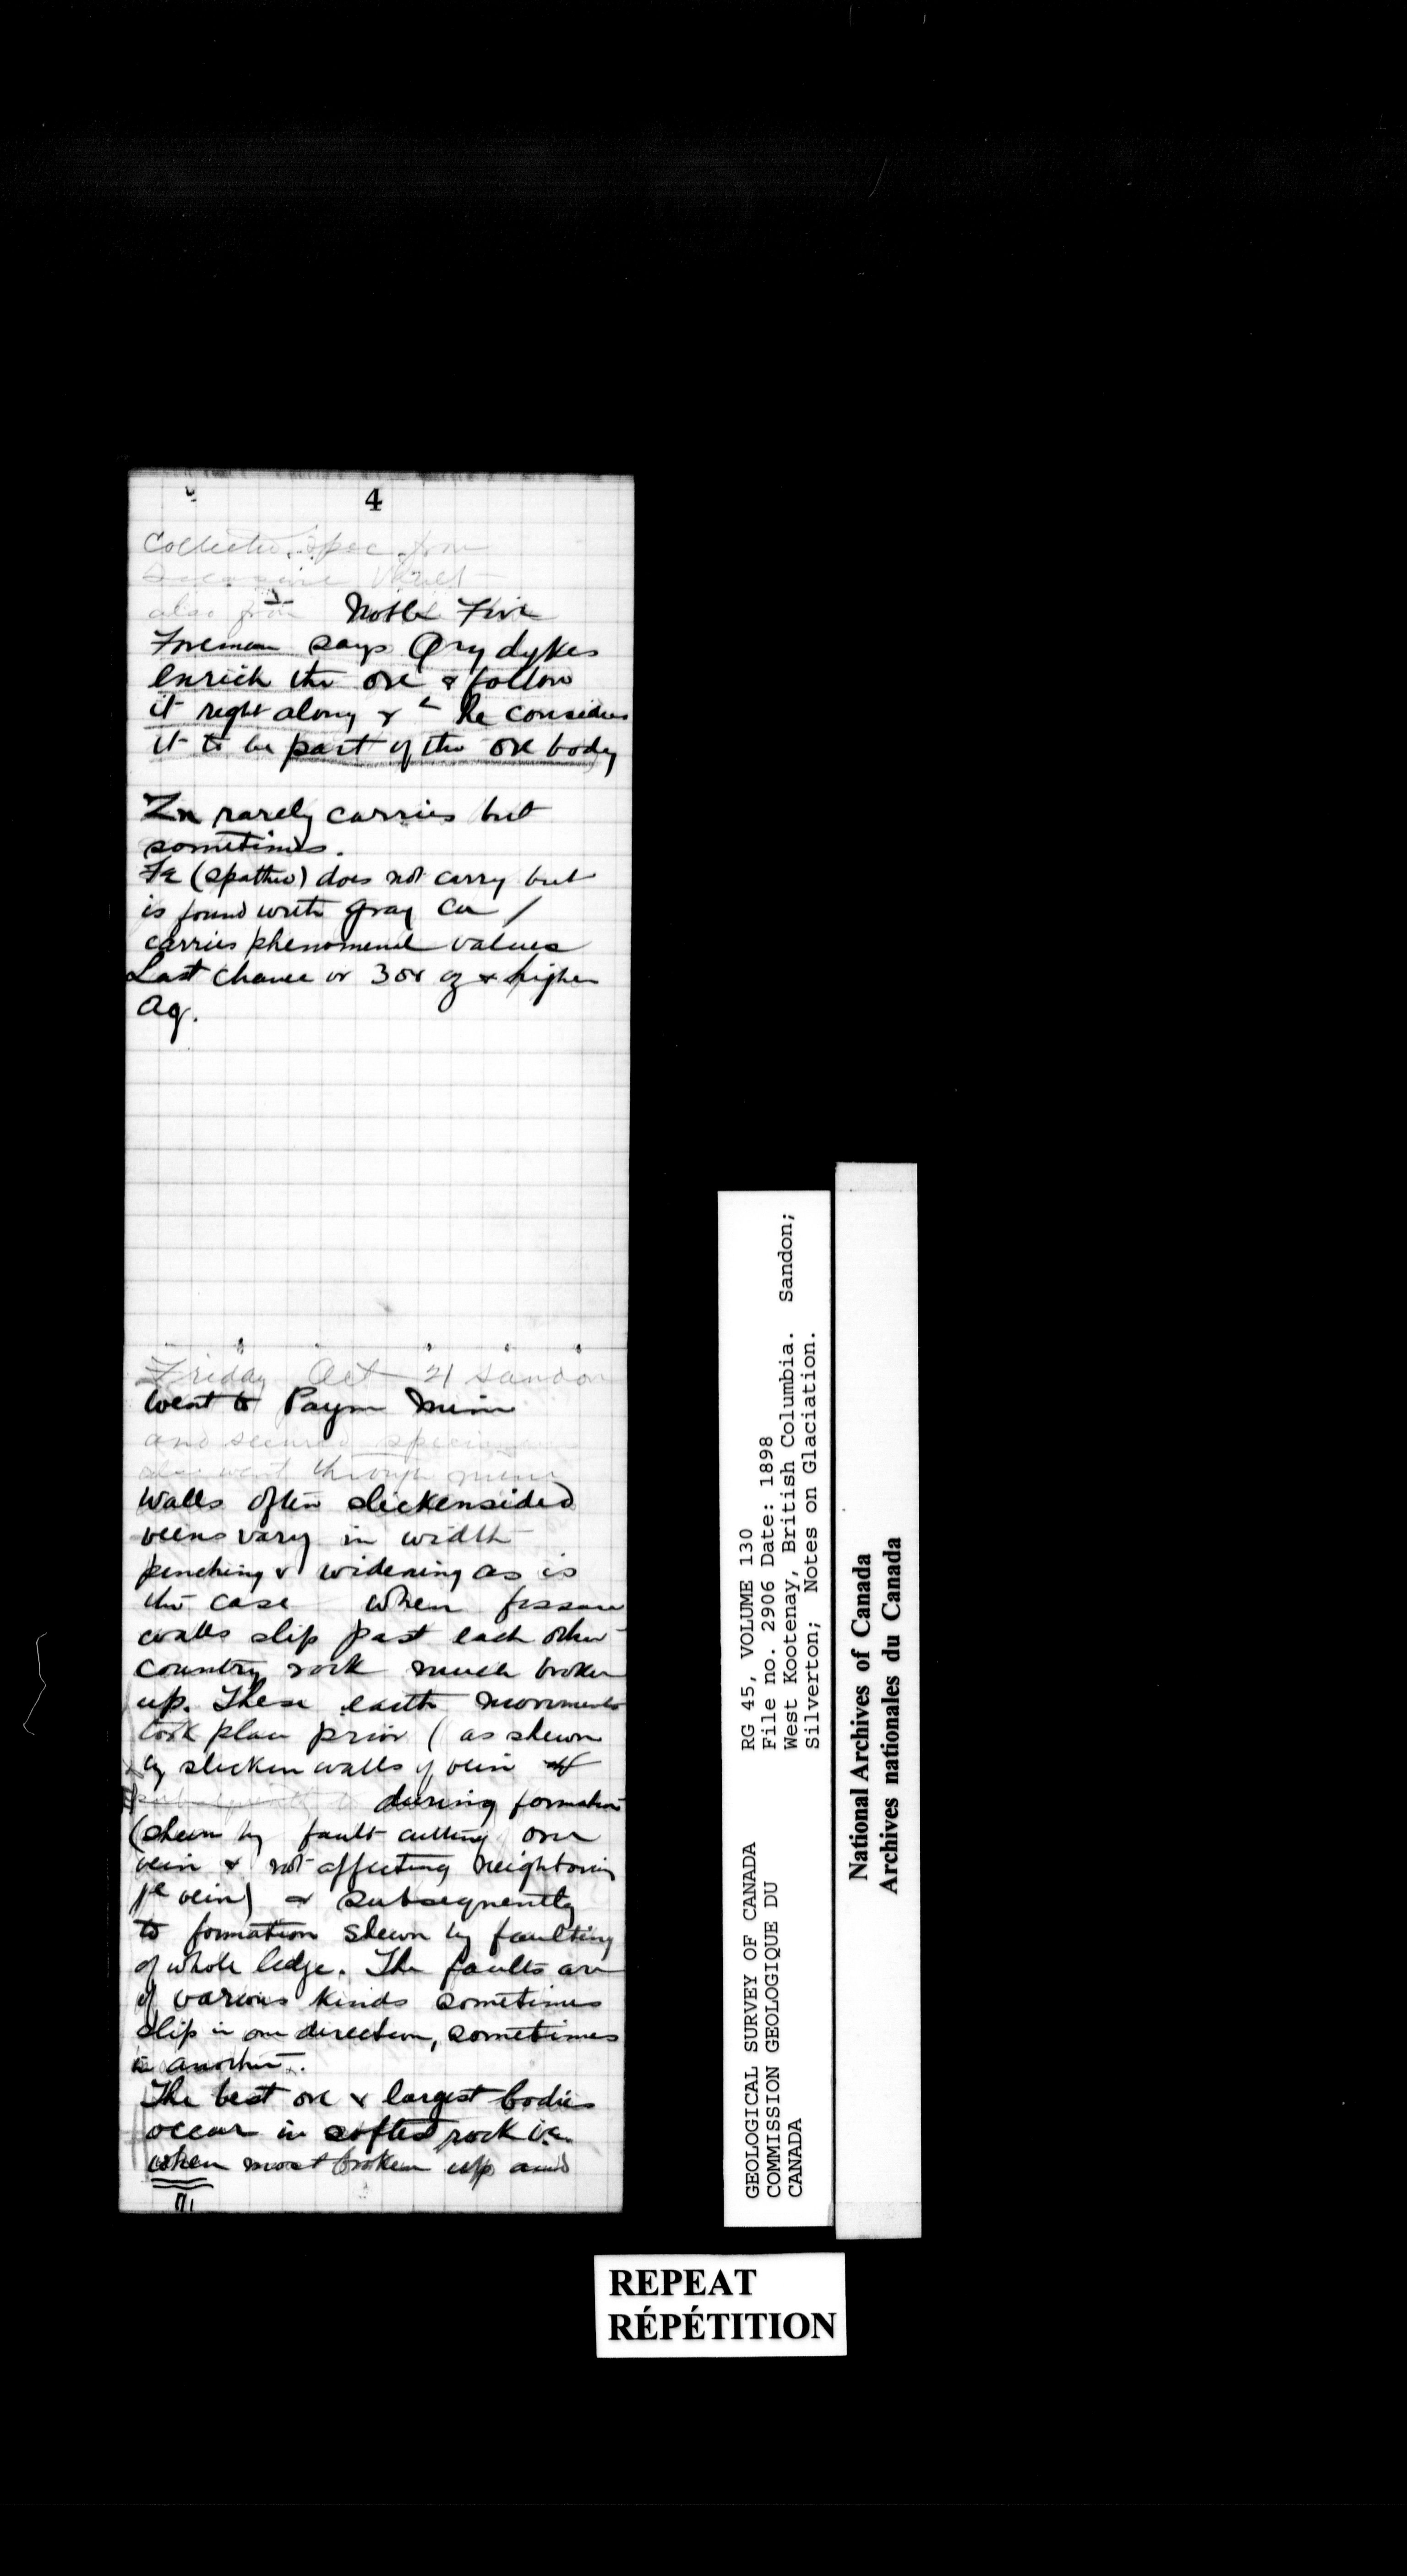 4
Collected spec from
also from Noble Five
Foreman says Qry dykes
enrich the ore & follow
it right along & he considers
it to be part of the ore body
Zn rarely carries but
sometimes.
Fe (spathic) does not carry but
is found with gray Cu /
carries phenomenal values
Last Chance or oz & higher
Ag.
Friday Oct 21 Sandon
Went to Payne Mine
and secured specimens
also went through mine
Walls often slickensided
veins vary in width
pinching & widening as is
the case when fissure
walls slip past each other
country rock much broken
up. These earth movements
took place prior (as shewn
by slicken walls of vein
subsequently to during formation
(shewn by fault cutting one
vein & not affecting neighboring
vein) & subsequently
to formation shewn by faulting
of whole ledge. The faults are
of various kinds sometimes
slip in one direction, sometimes
in another.
The best ore & largest bodies
occur in softest rock i.e.
when most broken up and
GEOLOGICAL SURVEY OF CANADA
COMMISSION GEOLOGIQUE DU
CANADA
RG 45, VOLUME 130
File no. 2906 Date: 1898
West Kootenay, British Columbia. Sandon;
Silverton; Notes on Glaciation.
National Archives of Canada
Archives nationales du Canada
REPEAT
RÉPÉTITION